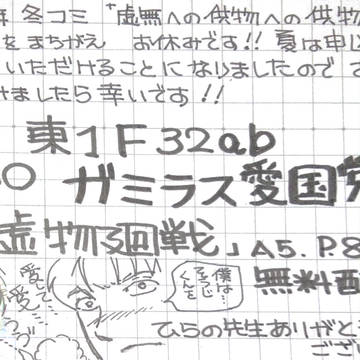 冬コミ「虚無への供物への供物
をまちがえ お休みです!! 夏は申し
いただけることになりましたので
けましたら幸いです!!
東1F32ab
ガミラス愛国
虚物廻戦」A5.P.8
無料
僕は…
愛して
愛して
ひらの先生ありがと
ござい